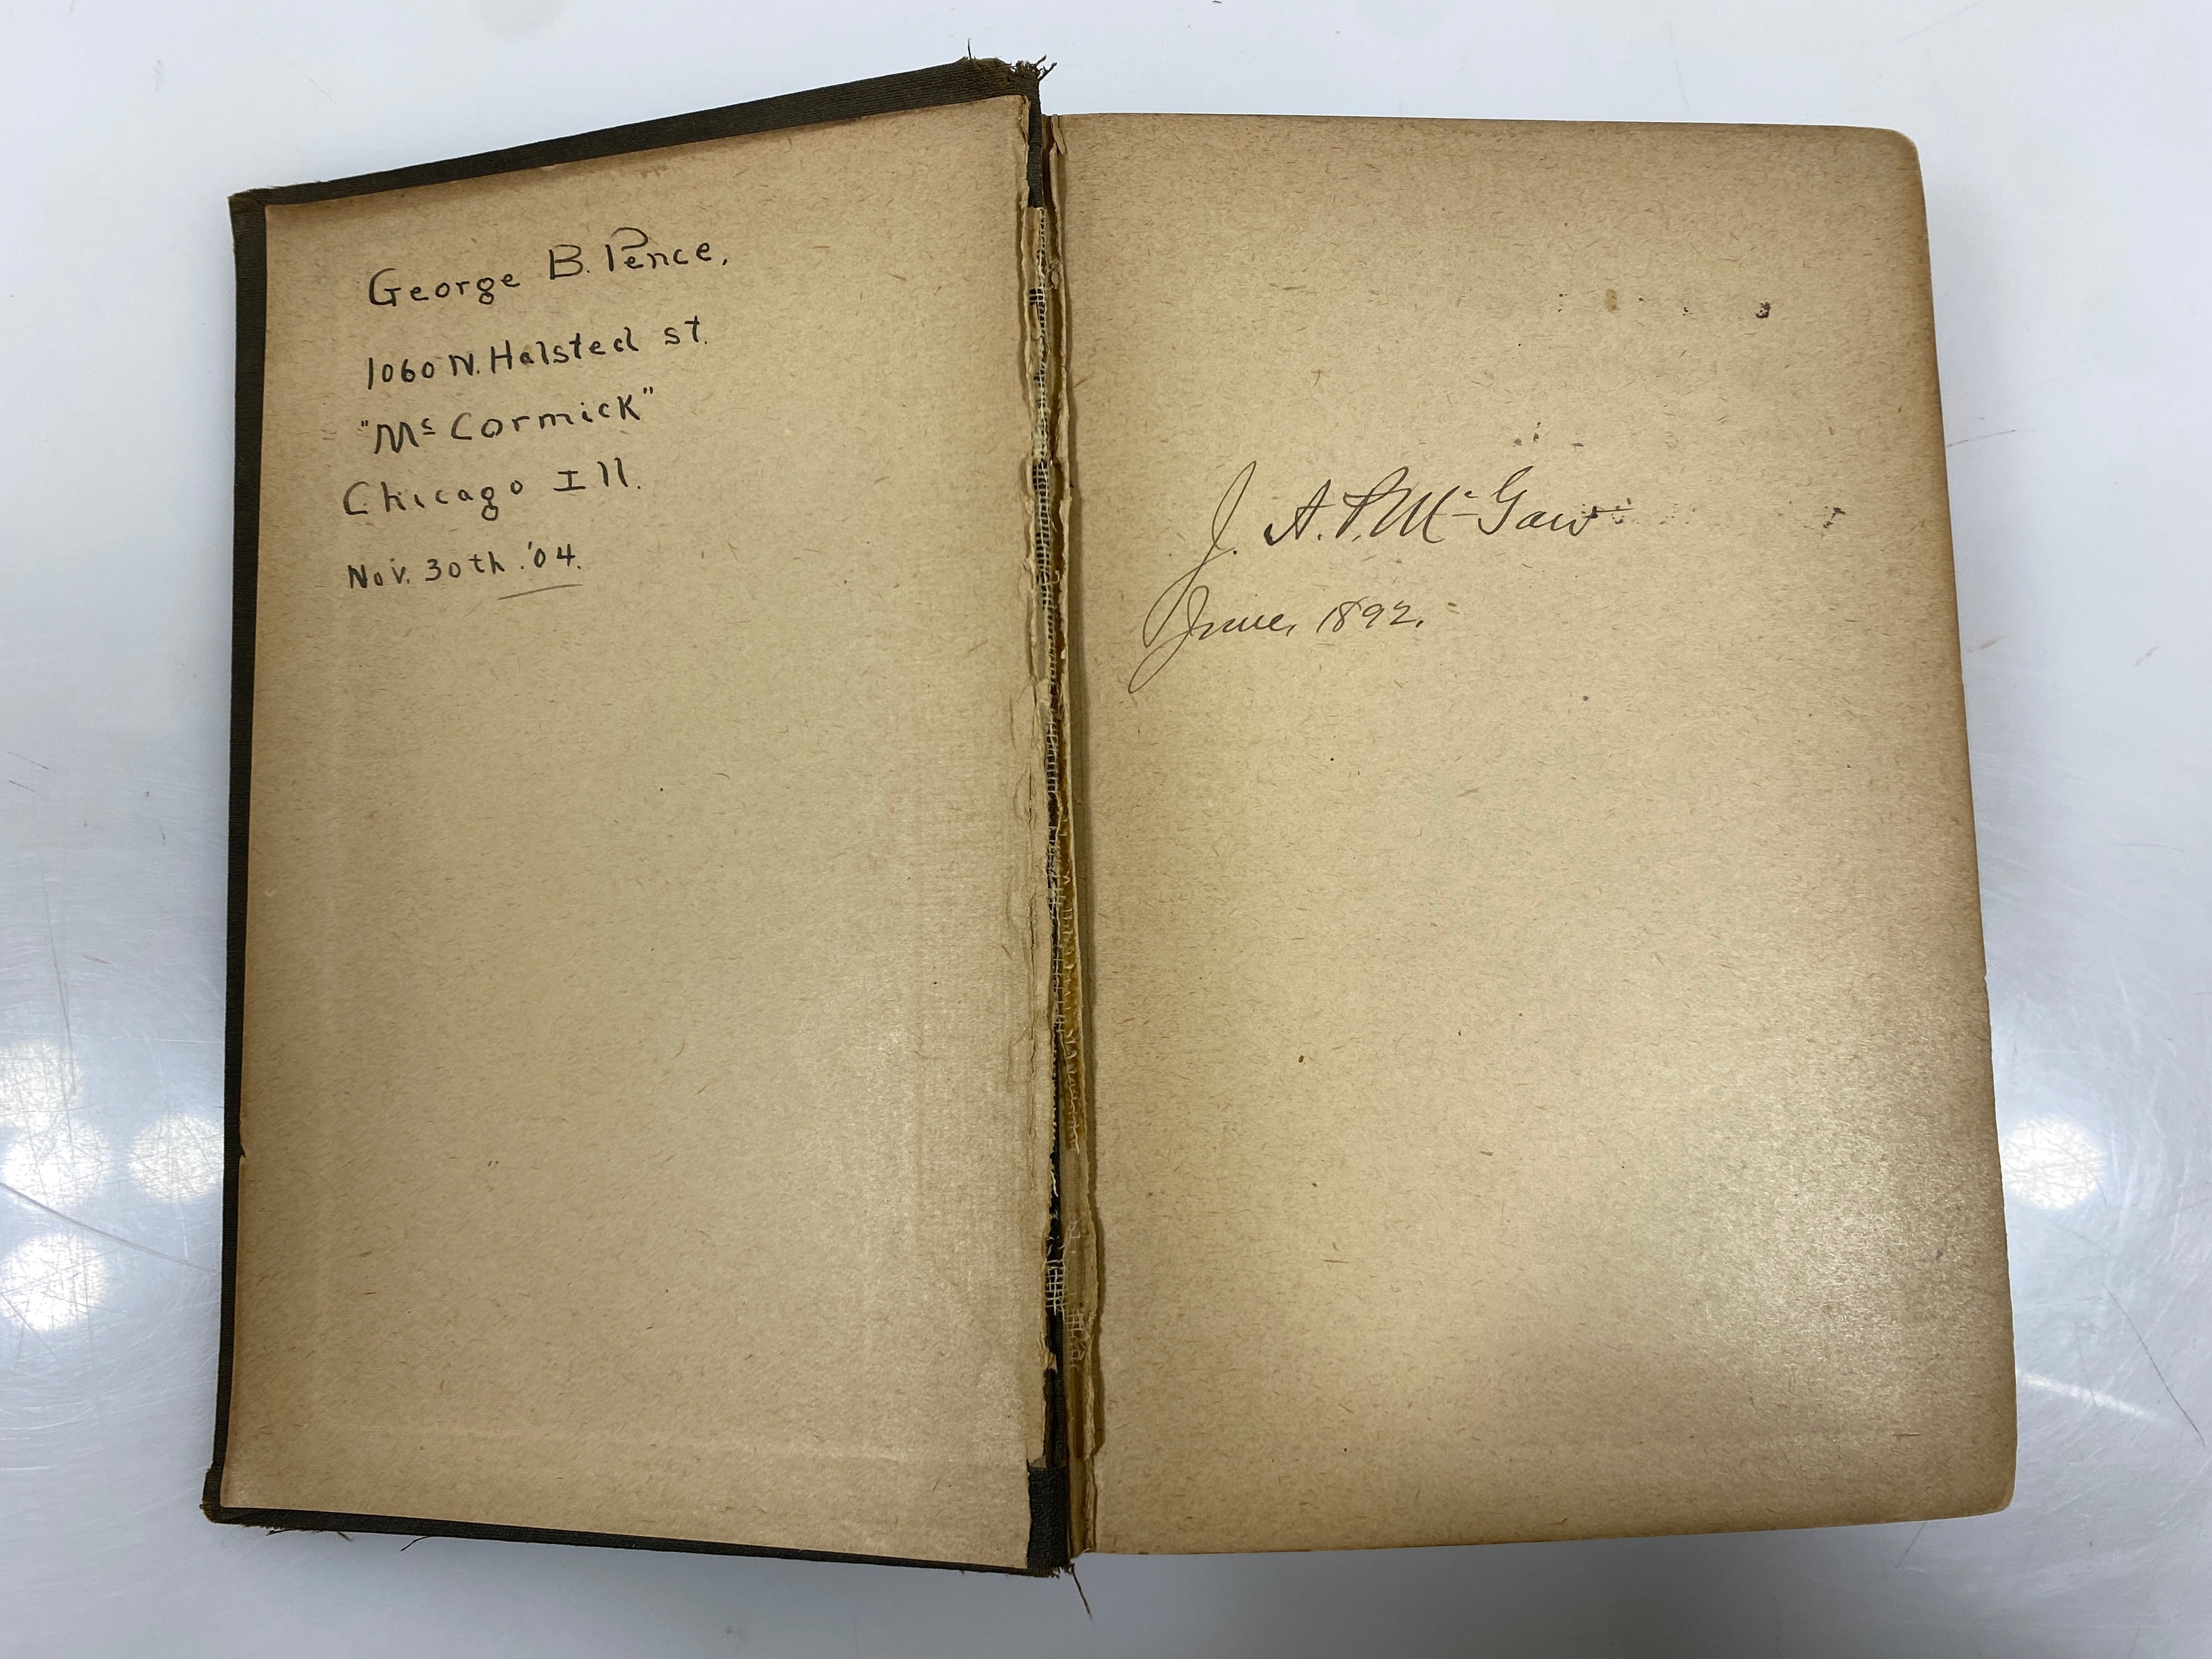 George B. Pence,
1060 N. Halsted st.
"Mc Cormick"
Chicago Ill.
Nov. 30th. '04.
J. A. P. McGaw
June, 1892.